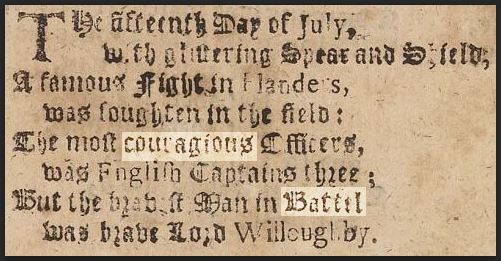 The fifteenth Day of July,
with glittering Spear and Shield,
A famous Fight in Flanders,
was foughten in the field:
The most couragious Officers,
was English Captains three;
But the bravest Man in Battel
was brave Lord Willoughby.